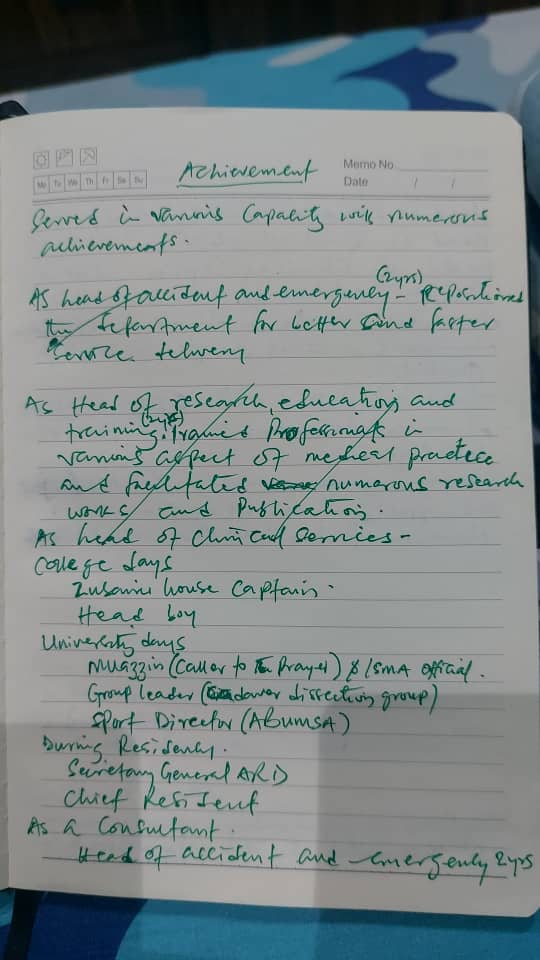 Achievement
Memo No.
Mo Tu We Th Fr Sa Su
Date / /
Served in various Capacity with numerous
achievements.
(2yrs)
As head of accident and emergency - Repositioned
the department for better and faster
service delivery
As Head of research, education and
(2yrs)
training. Trained Professionals in
various aspect of medical practice
and facilitated numerous research
works and Publication.
As head of Clinical Services -
College days
Zusami house Captain.
Head boy
University days
Muazzin (Caller to the Prayer) & ISMA official.
Group leader (Cadaver dissection group)
Sport Director (ABUMSA)
During Residency.
Secretary General ARD
Chief Resident
As a Consultant.
Head of accident and emergency 2yrs